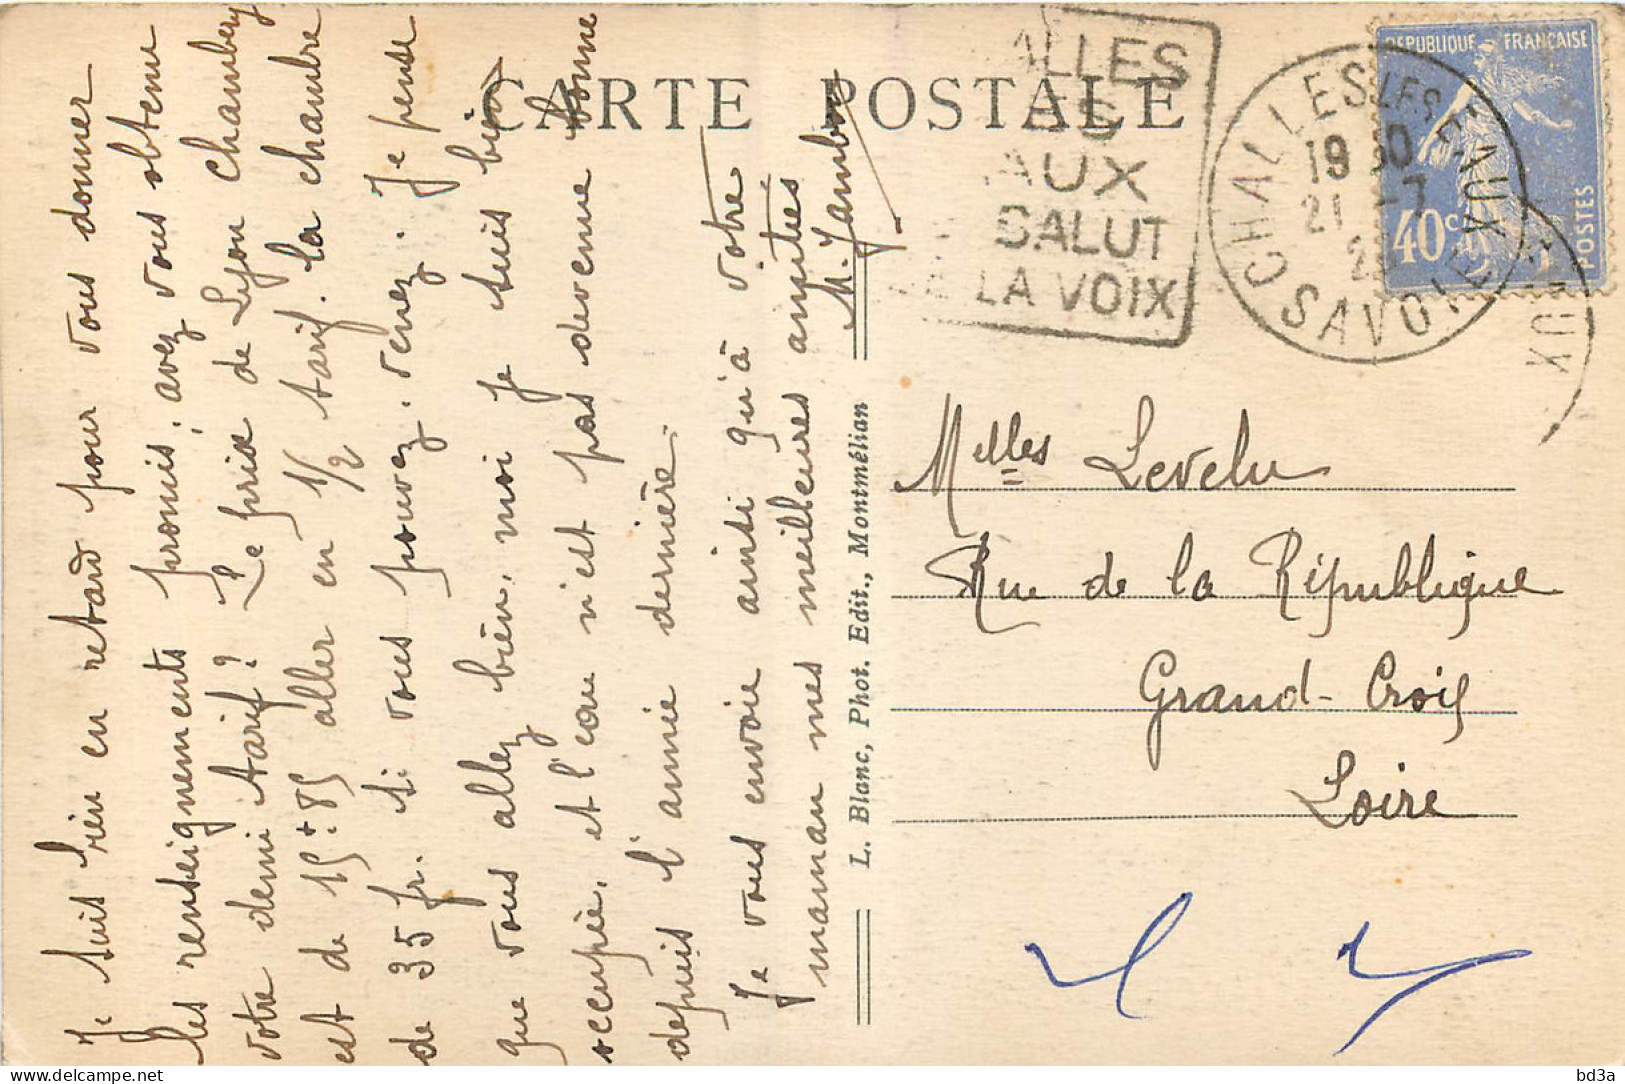 CARTE POSTALE
ALLES
ES
AUX
SALUT
LA VOIX
CHALLES LES EAUX
19 30
21 -7
SAVOIE
REPUBLIQUE FRANÇAISE
40c
POSTES
AUX
Je suis bien en retard pour vous donner
les renseignements promis, avez vous obtenu
votre demi tarif? Le prix de Lyon Chambery
est de aller en 1/2 tarif. la chambre
de 35 fr. si vous pouvez, venez. Je pense
que vous allez bien, moi je suis bien
occupée, et l'eau n'est pas devenue bonne
depuis l'année dernière.
Je vous envoie ainsi qu'à votre
maman mes meilleures amitiés
L. Blanc, Phot. Edit., Montmélian
Melles Levelu
Rue de la République
Grand-Croix
Loire
bd3a